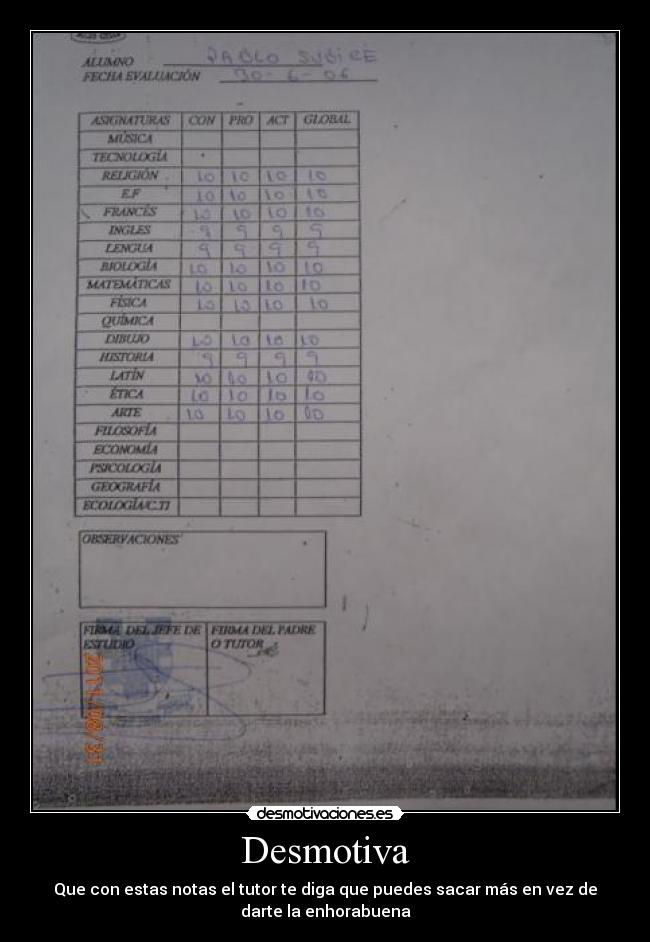 ALUMNO PABLO SUBIRE
FECHA EVALUACIÓN 30-6-06
ASIGNATURAS CON PRO ACT GLOBAL
MÚSICA
TECNOLOGÍA
RELIGIÓN 10 10 10 10
E.F 10 10 10 10
FRANCÉS 10 10 10 10
INGLES 9 9 9 9
LENGUA 9 9 9 9
BIOLOGÍA 10 10 10 10
MATEMÁTICAS 10 10 10 10
FÍSICA 10 10 10 10
QUÍMICA
DIBUJO 10 10 10 10
HISTORIA 9 9 9 9
LATÍN 10 10 10 10
ÉTICA 10 10 10 10
ARTE 10 10 10 10
FILOSOFÍA
ECONOMÍA
PSICOLOGÍA
GEOGRAFÍA
ECOLOGÍA/C.TI
OBSERVACIONES
FIRMA DEL JEFE DE ESTUDIO
FIRMA DEL PADRE O TUTOR
desmotivaciones.es
Desmotiva
Que con estas notas el tutor te diga que puedes sacar más en vez de
darte la enhorabuena